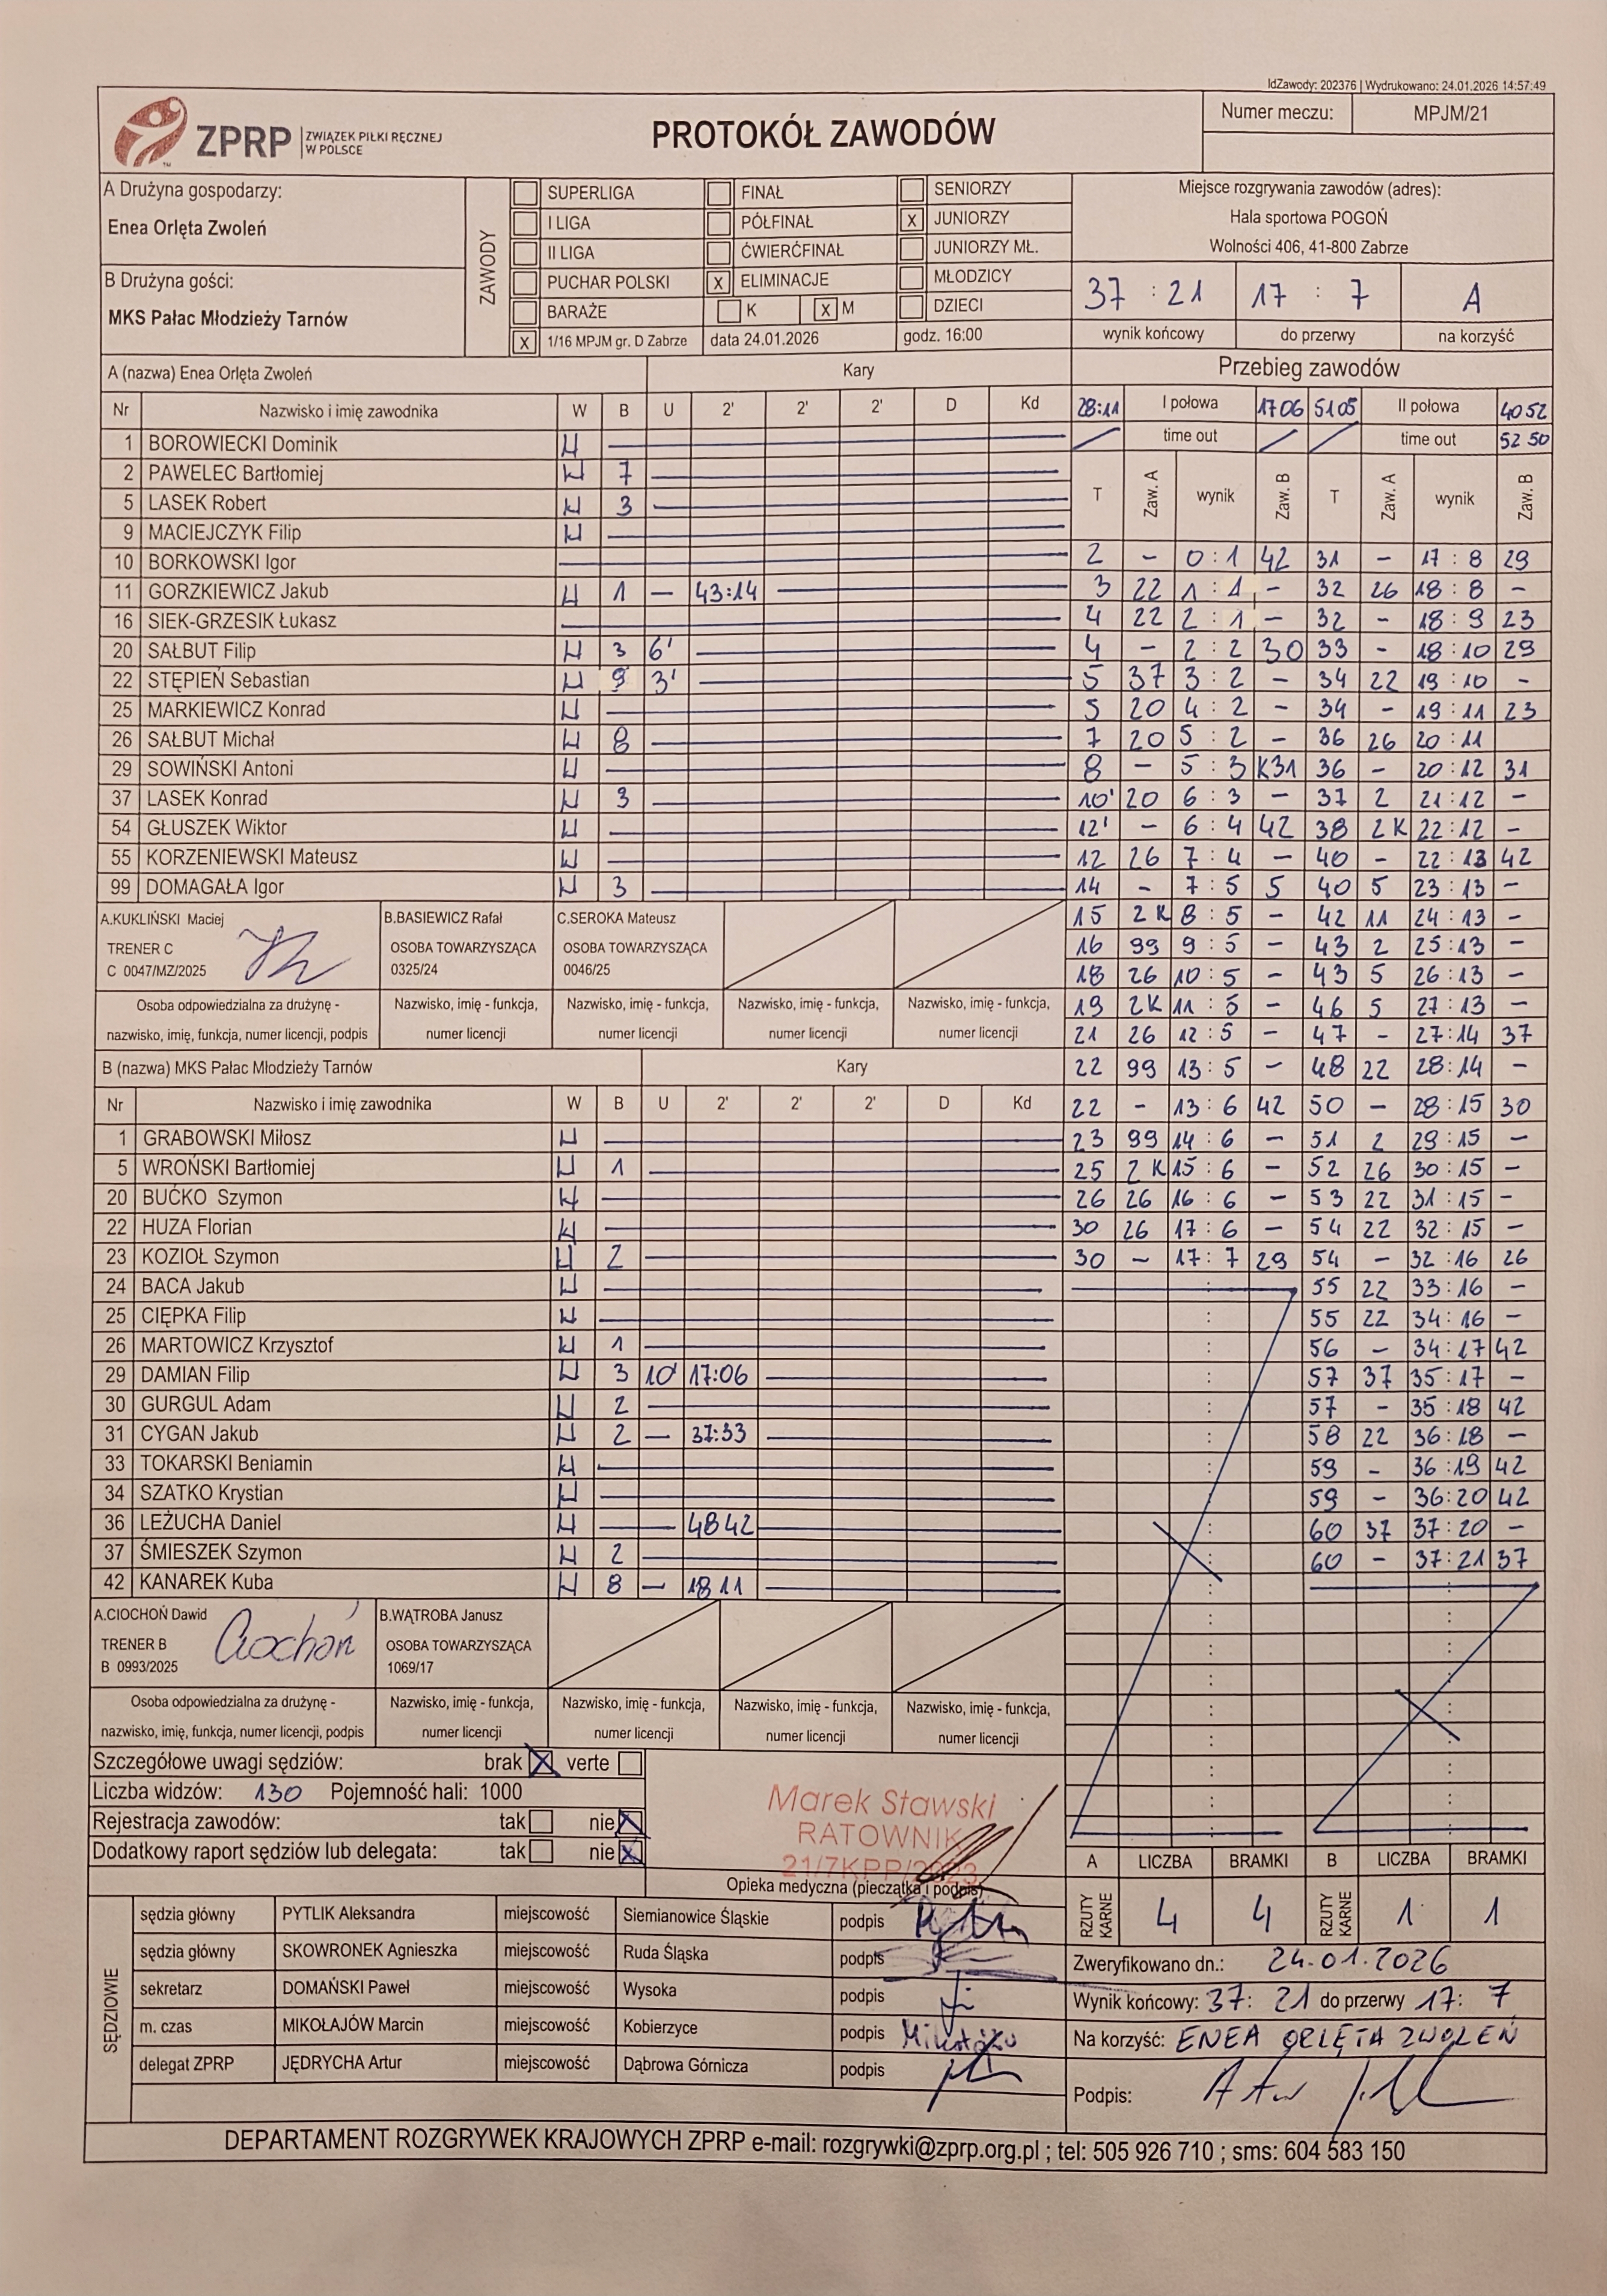 IdZawody: 202376 | Wydrukowano: 24.01.2026 14:57:49
ZPRP ZWIĄZEK PIŁKI RĘCZNEJ W POLSCE
PROTOKÓŁ ZAWODÓW
Numer meczu: MPJM/21
A Drużyna gospodarzy:
Enea Orlęta Zwoleń
B Drużyna gości:
MKS Pałac Młodzieży Tarnów
ZAWODY
SUPERLIGA FINAŁ SENIORZY
I LIGA PÓŁFINAŁ X JUNIORZY
II LIGA ĆWIERĆFINAŁ JUNIORZY MŁ.
PUCHAR POLSKI X ELIMINACJE MŁODZICY
BARAŻE K X M DZIECI
X 1/16 MPJM gr. D Zabrze data 24.01.2026 godz. 16:00
Miejsce rozgrywania zawodów (adres):
Hala sportowa POGOŃ
Wolności 406, 41-800 Zabrze
37 : 21 17 : 7 A
wynik końcowy do przerwy na korzyść
A (nazwa) Enea Orlęta Zwoleń Kary
Nr Nazwisko i imię zawodnika W B U 2' 2' 2' D Kd
1 BOROWIECKI Dominik W
2 PAWELEC Bartłomiej W 7
5 LASEK Robert W 3
9 MACIEJCZYK Filip W
10 BORKOWSKI Igor
11 GORZKIEWICZ Jakub W 1 — 43:14
16 SIEK-GRZESIK Łukasz
20 SAŁBUT Filip W 3 6'
22 STĘPIEŃ Sebastian W 9 3'
25 MARKIEWICZ Konrad W
26 SAŁBUT Michał W 8
29 SOWIŃSKI Antoni W
37 LASEK Konrad W 3
54 GŁUSZEK Wiktor W
55 KORZENIEWSKI Mateusz W
99 DOMAGAŁA Igor W 3
A.KUKLIŃSKI Maciej
TRENER C
C 0047/MZ/2025
B.BASIEWICZ Rafał
OSOBA TOWARZYSZĄCA
0325/24
C.SEROKA Mateusz
OSOBA TOWARZYSZĄCA
0046/25
Osoba odpowiedzialna za drużynę -
nazwisko, imię, funkcja, numer licencji, podpis
Nazwisko, imię - funkcja,
numer licencji
Nazwisko, imię - funkcja,
numer licencji
Nazwisko, imię - funkcja,
numer licencji
Nazwisko, imię - funkcja,
numer licencji
B (nazwa) MKS Pałac Młodzieży Tarnów Kary
Nr Nazwisko i imię zawodnika W B U 2' 2' 2' D Kd
1 GRABOWSKI Miłosz W
5 WROŃSKI Bartłomiej W 1
20 BUĆKO Szymon W
22 HUZA Florian W
23 KOZIOŁ Szymon W 2
24 BACA Jakub W
25 CIĘPKA Filip W
26 MARTOWICZ Krzysztof W 1
29 DAMIAN Filip W 3 10' 17:06
30 GURGUL Adam W 2
31 CYGAN Jakub W 2 — 37:33
33 TOKARSKI Beniamin W
34 SZATKO Krystian W
36 LEŻUCHA Daniel W 48 42
37 ŚMIESZEK Szymon W 2
42 KANAREK Kuba W 8 — 18 11
A.CIOCHOŃ Dawid
TRENER B
B 0993/2025
Ciochoń
B.WĄTROBA Janusz
OSOBA TOWARZYSZĄCA
1069/17
Osoba odpowiedzialna za drużynę -
nazwisko, imię, funkcja, numer licencji, podpis
Nazwisko, imię - funkcja,
numer licencji
Nazwisko, imię - funkcja,
numer licencji
Nazwisko, imię - funkcja,
numer licencji
Nazwisko, imię - funkcja,
numer licencji
Przebieg zawodów
28:11 I połowa 17 06 51 05 II połowa 40 52
time out time out 52 50
T Zaw. A wynik Zaw. B T Zaw. A wynik Zaw. B
2 - 0 : 1 42 31 - 17 : 8 29
3 22 1 : 1 - 32 26 18 : 8 -
4 22 2 : 1 - 32 - 18 : 9 23
4 - 2 : 2 30 33 - 18 : 10 29
5 37 3 : 2 - 34 22 19 : 10 -
5 20 4 : 2 - 34 - 19 : 11 23
7 20 5 : 2 - 36 26 20 : 11
8 - 5 : 3 K31 36 - 20 : 12 31
10' 20 6 : 3 - 37 2 21 : 12 -
12' - 6 : 4 42 38 2 K 22 : 12 -
12 26 7 : 4 - 40 - 22 : 13 42
14 - 7 : 5 5 40 5 23 : 13 -
15 2 K 8 : 5 - 42 11 24 : 13 -
16 99 9 : 5 - 43 2 25 : 13 -
18 26 10 : 5 - 43 5 26 : 13 -
19 2K 11 : 5 - 46 5 27 : 13 -
21 26 12 : 5 - 47 - 27 : 14 37
22 99 13 : 5 - 48 22 28 : 14 -
22 - 13 : 6 42 50 - 28 : 15 30
23 99 14 : 6 - 51 2 29 : 15 -
25 2 K 15 : 6 - 52 26 30 : 15 -
26 26 16 : 6 - 53 22 31 : 15 -
30 26 17 : 6 - 54 22 32 : 15 -
30 - 17 : 7 29 54 - 32 : 16 26
55 22 33 : 16 -
55 22 34 : 16 -
56 - 34 : 17 42
57 37 35 : 17 -
57 - 35 : 18 42
58 22 36 : 18 -
59 - 36 : 19 42
59 - 36 : 20 42
60 37 37 : 20 -
60 - 37 : 21 37
Szczegółowe uwagi sędziów: brak X verte
Liczba widzów: 130 Pojemność hali: 1000
Rejestracja zawodów: tak nie X
Dodatkowy raport sędziów lub delegata: tak nie X
Marek Stawski
RATOWNIK
21/7KPP/2023
Opieka medyczna (pieczątka i podpis)
A LICZBA BRAMKI B LICZBA BRAMKI
RZUTY KARNE 4 4 RZUTY KARNE 1 1
SĘDZIOWIE
sędzia główny PYTLIK Aleksandra miejscowość Siemianowice Śląskie podpis
sędzia główny SKOWRONEK Agnieszka miejscowość Ruda Śląska podpis
sekretarz DOMAŃSKI Paweł miejscowość Wysoka podpis
m. czas MIKOŁAJÓW Marcin miejscowość Kobierzyce podpis
delegat ZPRP JĘDRYCHA Artur miejscowość Dąbrowa Górnicza podpis
Zweryfikowano dn.: 24.01.2026
Wynik końcowy: 37 : 21 do przerwy 17 : 7
Na korzyść: ENEA ORLĘTA ZWOLEŃ
Podpis:
DEPARTAMENT ROZGRYWEK KRAJOWYCH ZPRP e-mail: rozgrywki@zprp.org.pl ; tel: 505 926 710 ; sms: 604 583 150